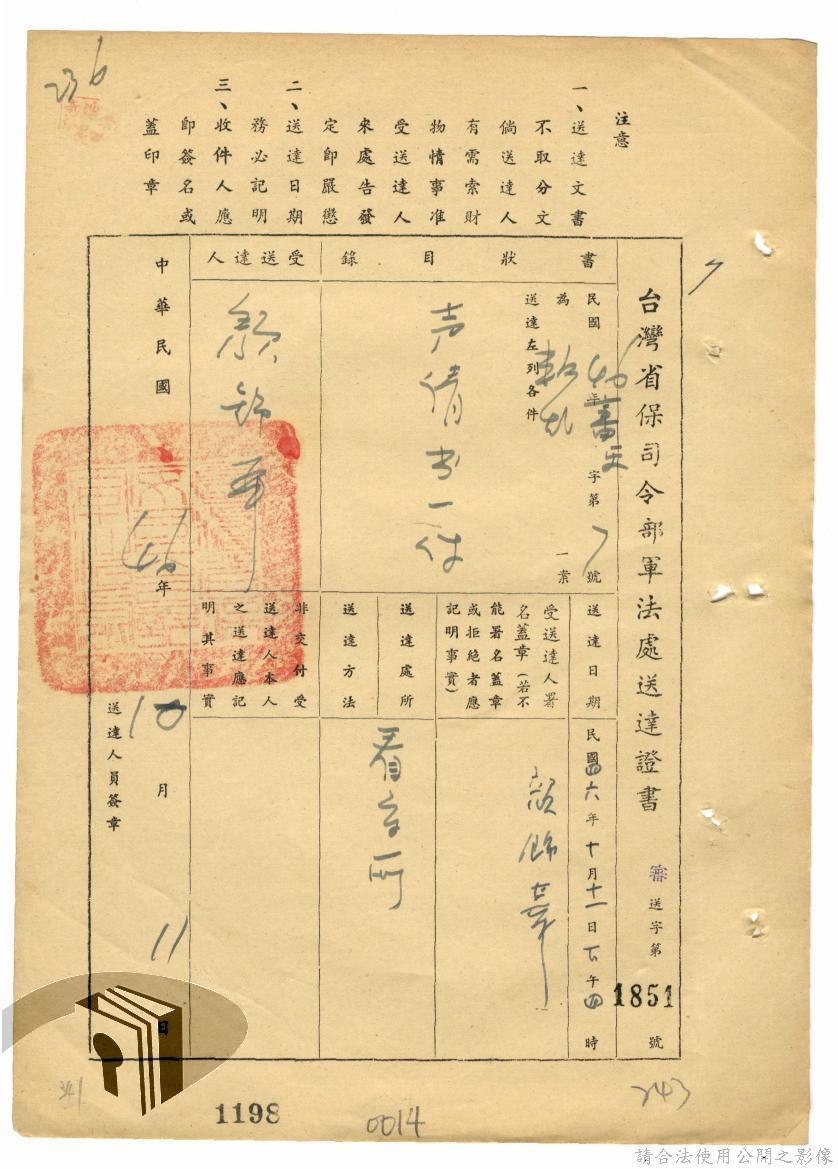 注意
一、送達文書
不取分文
倘送達人
有需索財
物情事准
受送達人
來處告發
定即嚴懲
二、送達日期
務必記明
三、收件人應
即簽名或
蓋印章
台灣省保司令部軍法處送達證書
審送字第1851號
書狀目錄
民國46年審 字第7號
為叛亂一案
送達左列各件
声請書一件
受送達人
顏錦華
送達日期
民國四六年十月十一日下午四時
受送達人署
名蓋章(若不
能署名蓋章
或拒絕者應
記明事實)
顏錦華
送達處所
看守所
送達方法
非交付受
送達人本人
之送達應記
明其事實
中華民國46年10月11日
送達人員簽章
7
236
341
1198
0014
243
請合法使用公開之影像